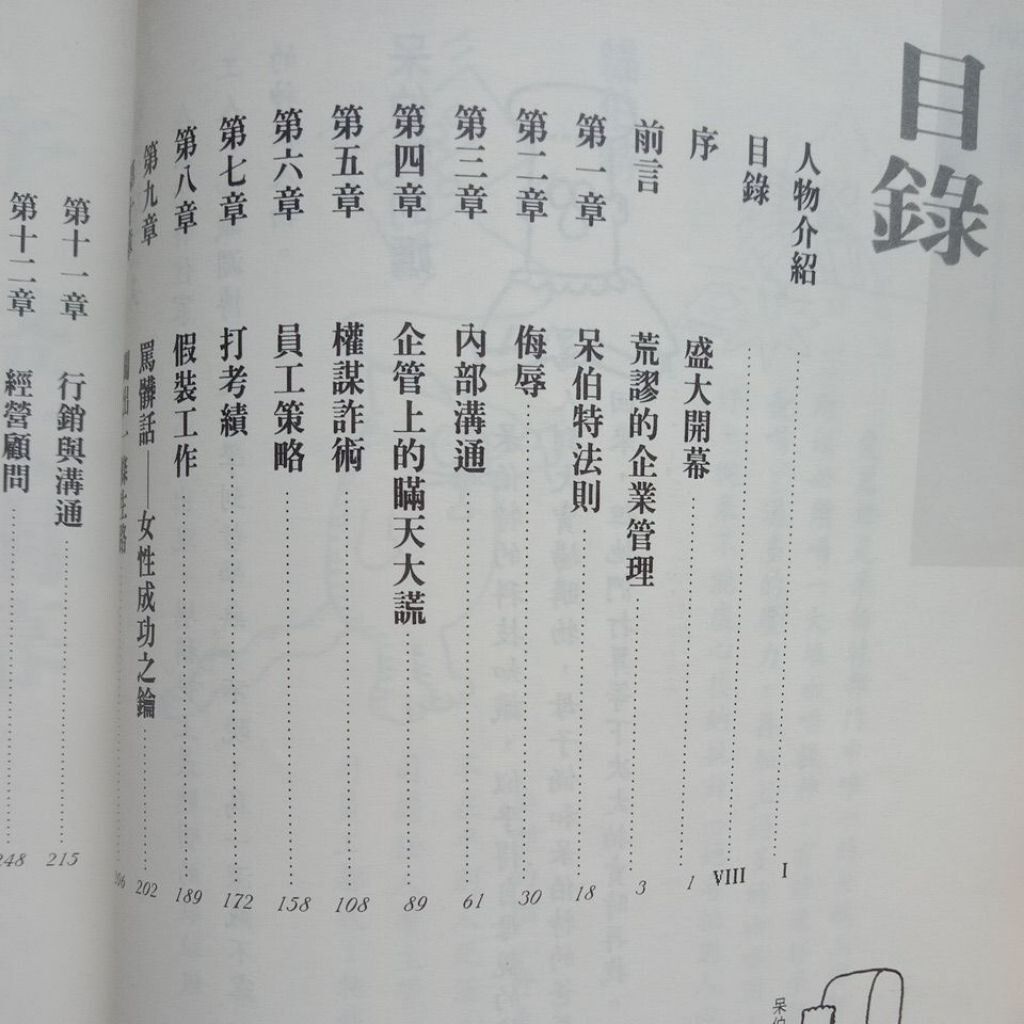 目錄
人物介紹 I
目錄 VIII
序 盛大開幕 1
前言 荒謬的企業管理 3
第一章 呆伯特法則 18
第二章 侮辱 30
第三章 內部溝通 61
第四章 企管上的瞞天大謊 89
第五章 權謀詐術 108
第六章 員工策略 158
第七章 打考績 172
第八章 假裝工作 189
第九章 罵髒話——女性成功之鑰 202
第十一章 行銷與溝通 215
第十二章 經營顧問 248
呆伯